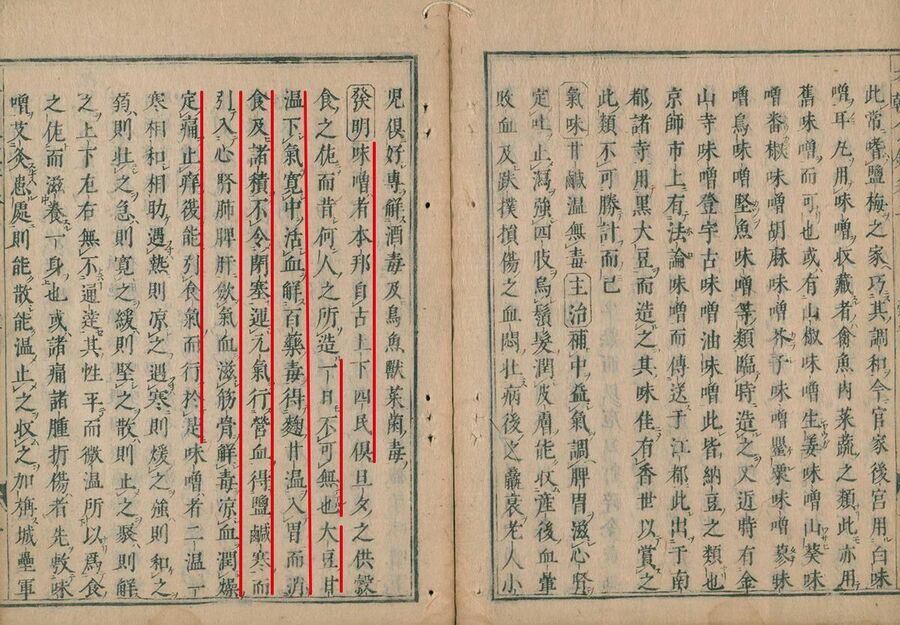 此常嗜鹽梅之家巧其調和今官家後宮用白味
噌耳凡用味噌收藏者禽魚肉菜蔬之類此亦用
舊味噌而可也或有山椒味噌生姜味噌山葵味
噌番椒味噌胡麻味噌芥子味噌罌粟味噌蓼味
噌鳥味噌堅魚味噌等類臨時造之又近時有金
山寺味噌登宇古味噌油味噌此皆納豆之類也
京師市上有法論味噌而傳送于江都此出于南
都諸寺用黑大豆而造之其味佳有香世以賞之
此類不可勝計而已
氣味甘鹹温無毒主治補中益氣調脾胃滋心腎
定吐止瀉強四肢烏鬚髮潤皮膚能收産後血暈
敗血及跌撲損傷之血悶壯病後之羸衰老人小
兒俱好專解酒毒及鳥魚獸菜菌毒
發明味噌者本邦自古上下四民俱旦夕之供穀
食之佐而昔何人之所造一日不可無也大豆甘
温下氣寛中活血解百藥毒得麹甘温入胃而消
食及諸積不令閉塞運元氣行營血得鹽鹹寒而
引入心腎肺脾肝斂氣血滋筋骨解毒凉血潤燥
定痛止痒後能引食氣而行於是味噌者二温一
寒相和相助遇熱則凉之遇寒則煖之強則和之
弱則壯之急則寛之緩則堅之散則止之聚則解
之上下左右無不通達其性平而微温所以爲食
之佐而滋養一身也或諸痛諸腫折傷者先敷味
噌艾灸患處則能散能温止之收之加旃城壘軍